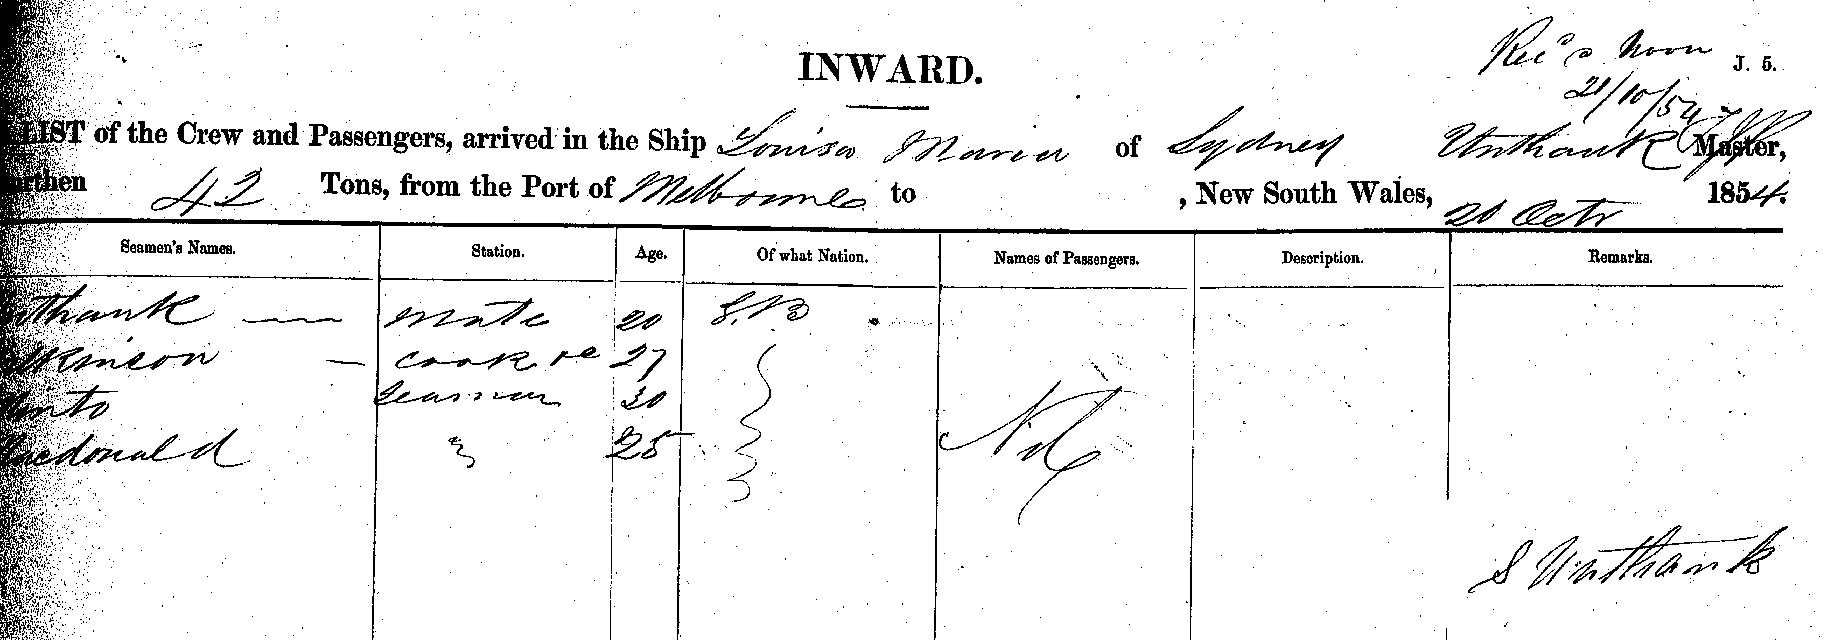 INWARD.
Rec'd Noon J. 5.
21/10/54
LIST of the Crew and Passengers, arrived in the Ship Louisa Maria of Sydney Unthank Master,
42 Tons, from the Port of Melbourne to , New South Wales, 20 Octr 1854.
Seamen's Names. Station. Age. Of what Nation. Names of Passengers. Description. Remarks.
Unthank — Mate 20 G.B
Wilkinson — Cook &c 27
Minto Seaman 30
Macdonald " 25 Nil
S Unthank